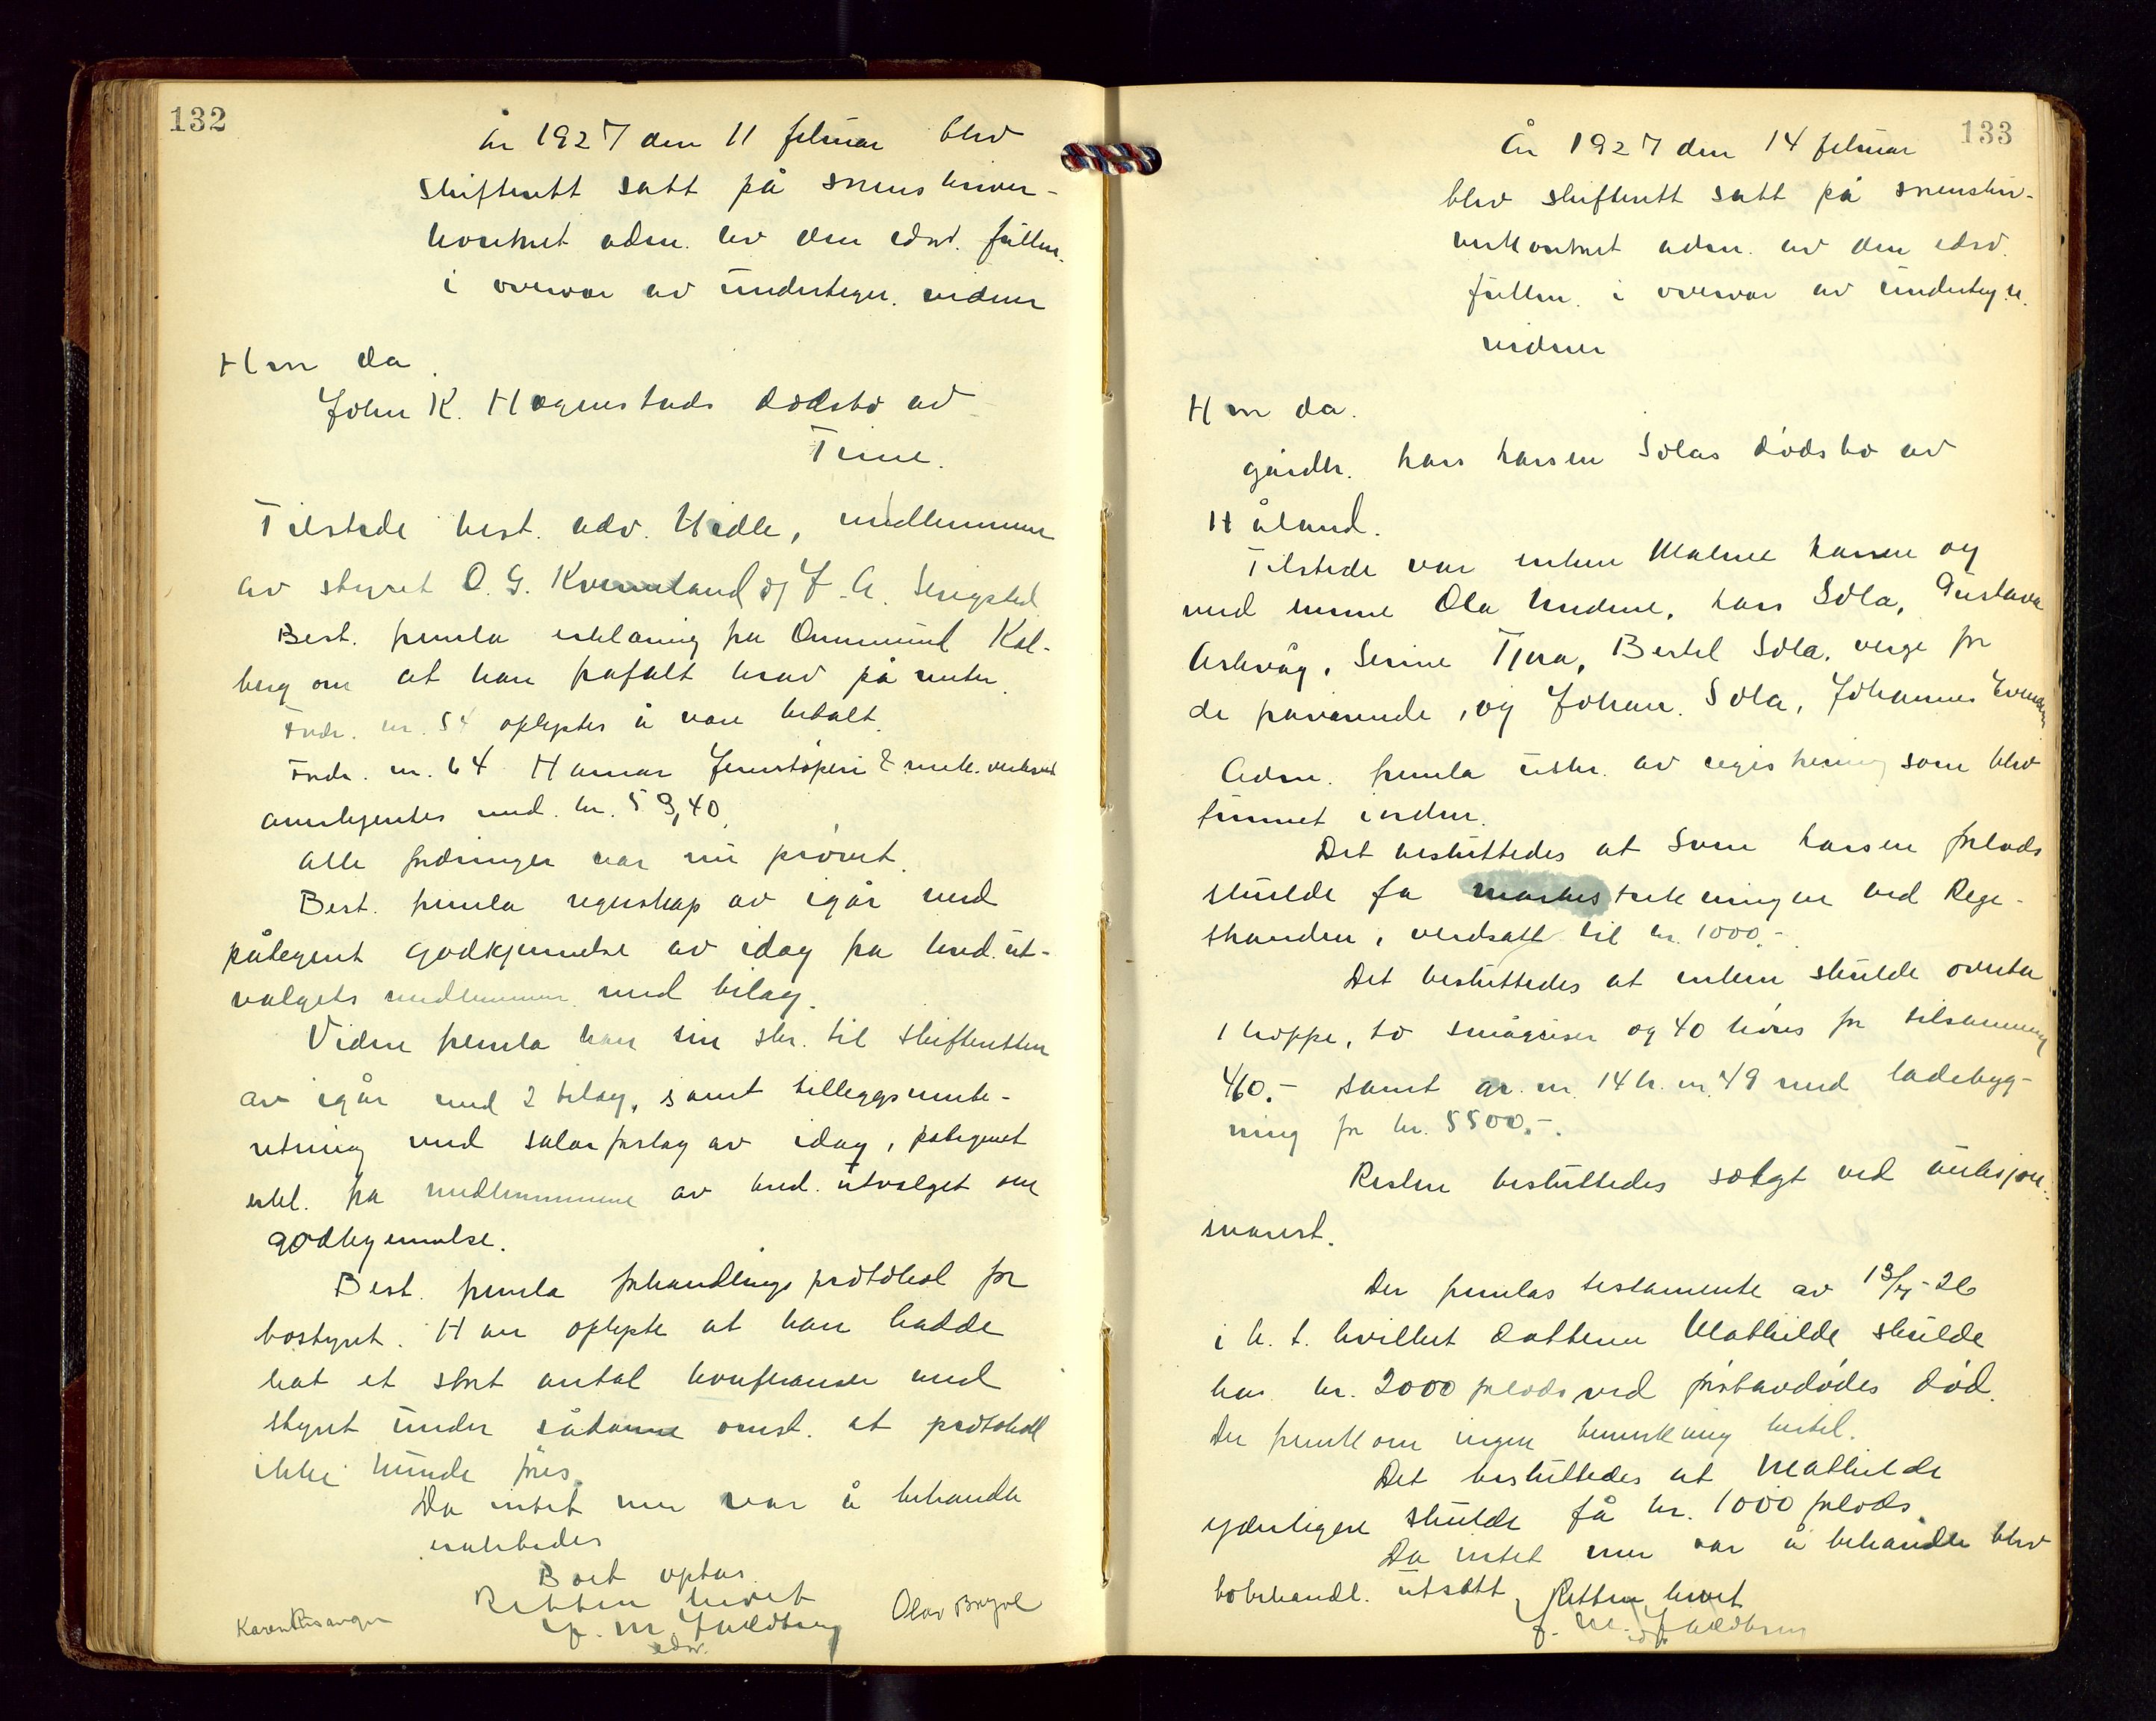 132
År 1927 den 11 februar blev
skifterett satt på sorenskriver-
kontoret adm. av den edsv. fullm.
i overvær av undertegn. vidner
Hvor da
John K. Høgnestads dødsbo av
Time.
Tilstede best. adv. Hidle, medlemmer
av styret O. G. Kverneland og J. A. Serigstad
Best. fremla erklæring fra Ommund Kal-
berg om at han frafalt krav på renter.
Fordr. nr. 54 oplystes å være betalt.
Fordr. nr. 64 Hamar Jernstøperi & mek. verksted
anerkjentes med kr. 59,40
Alle fordringer var nu prøvet.
Best. fremla regnskap av igår med
påtegnet godkjennelse av idag fra kred.ut-
valgets medlemmer med bilag.
Videre fremla han sin skr. til skifteretten
av igår med 2 bilag, samt tilleggsinnbe-
retning med salærforslag av idag, påtegnet
erkl. fra medlemmene av kred. utvalget om
godkjennelse.
Best. fremla forhandlingsprotokol for
bostyret. Han oplyste at han hadde
hat et stort antal konferanser med
styret under sådanne omst. at protokoll
ikke kunde føres.
Da intet mer var å behandle
esaltedes
Boet optas
Retten hevet
J. M. Fuldseng
edsv.
Olav Bryne
Karen Risanger
133
År 1927 den 14 februar
blev skifterett satt på sorenskri-
verkontoret adm. av den edsv.
fullm. i overvær av undertegn.
vidner
Hvor da.
gårdbr. Lars Larsen Solas dødsbo av
Håland.
Tilstede var enken Malene Larsen og
med henne Ola Undene, Lars Sola, Gustava
Askvåg, Serine Tjora, Bertel Sola, verge for
de fraværende, og Johan Sola, Johannes
Adm. fremla utskr. av registrering som blev
funnet i orden.
Det besluttedes at Sven Larsen forlods
skulde få strekningen ved Rege-
stranden, verdsatt til kr. 1000.-
Det besluttedes at enken skulde overta
1 hoppe, to smågriser og 40 høns for tilsammen
460.- samt gr. nr. 14 br. nr. 49 med ladebyg-
ning for kr. 5500.-.
Resten besluttedes solgt ved auksjon
snarest.
Der fremlas testamente av
i h. t. hvilket datteren Mathilde skulde
ha kr. 2000 forlods ved førstavdødes død.
Der fremkom ingen bemerkning hertil.
Det besluttedes at Mathilde
yderligere skulde få kr. 1000 forlods.
Da intet mer var å behandle blev
bobehandl. utsatt. Retten hevet
J. M. Fuldseng